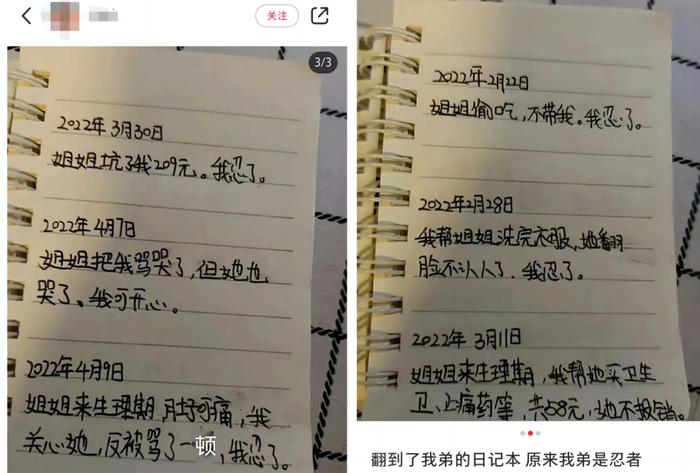 关注
3/3
2022年3月30日
姐姐坑了我209元。我忍了。
2022年4月7日
姐姐把我骂哭了,但她也
哭了。我可开心。
2022年4月9日
姐姐来生理期,肚子可痛,我
关心她,反被骂了一顿,我忍了。
2022年2月22日
姐姐偷吃,不带我。我忍了。
2022年2月28日
我帮姐姐洗完衣服,她翻
脸不认人了。我忍了。
2022年3月11日
姐姐来生理期,我帮她买卫生
卫、止痛药等,共58元,她不报销。
翻到了我弟的日记本 原来我弟是忍者